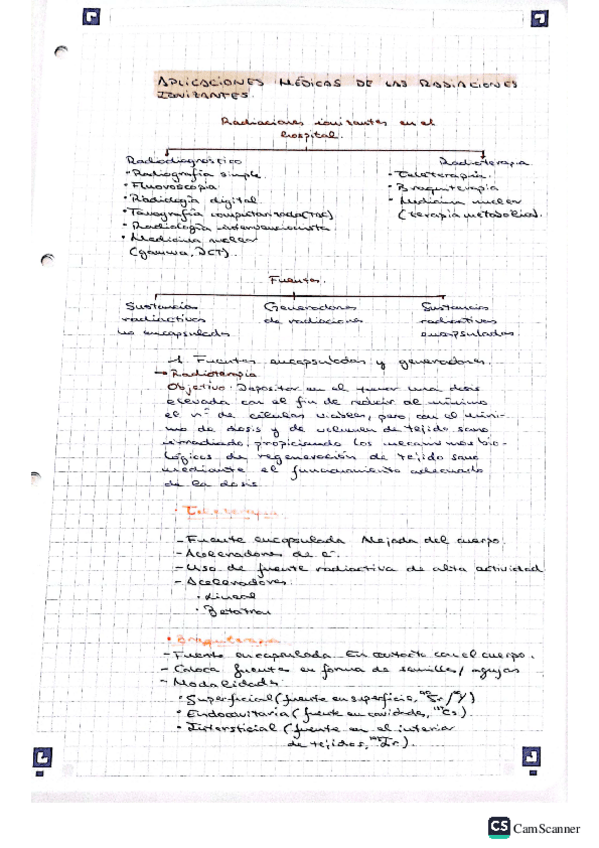 APLICACIONES MÉDICAS DE LAS RADIACIONES
IONIZANTES.
Radiaciones ionizantes en el
hospital.
Radiodiagnóstico
· Radiografía simple
· Fluoroscopia
· Radiología digital
· Tomografía computarizada (TAC)
· Radiología intervencionista
· Medicina nuclear
(gamma, PET).
Radioterapia
- Teleterapia.
- Braquiterapia
- Medicina nuclear
(terapia metabólica).
Fuentes.
Sustancias
radiactivas
no encapsuladas
Generadores
de radiaciones
Sustancias
radiactivas
encapsuladas.
1 Fuentes encapsuladas y generadores.
→ Radioterapia
Objetivo: Depositar en el tumor una dosis
elevada con el fin de reducir al mínimo
el nº de células viables, pero con el míni-
mo de dosis y de volumen de tejido sano
irradiado, propiciando los mecanismos bio-
lógicos de regeneración de tejido sano
mediante el funcionamiento adecuado
de la dosis
· Teleterapia
- Fuente encapsulada Alejada del cuerpo.
- Aceleradores de e⁻.
- Uso de fuente radiactiva de alta actividad
- Aceleradores:
· Lineal
· Betatrón
· Braquiterapia
- Fuente encapsulada. En contacto con el cuerpo.
- Coloca fuentes en forma de semillas/agujas
- Modalidades:
· Superficial (fuente en superficie, ⁹⁰Sr/⁹⁰Y)
· Endocavitaria (fuente en cavidades, ¹³⁷Cs).
· Intersticial (fuente en el interior
de tejidos, ¹⁹²Ir).
CS CamScanner